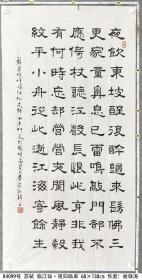 夜飲東坡醒復醉歸來髣髴三
更家童鼻息已雷鳴敲門都不
應倚杖聽江聲長恨此身非我
有何時忘卻營營夜闌風靜縠
紋平小舟從此逝江海寄餘生
84099号 苏轼 临江仙·夜归临皋 68×138cm 作者：俞铁海